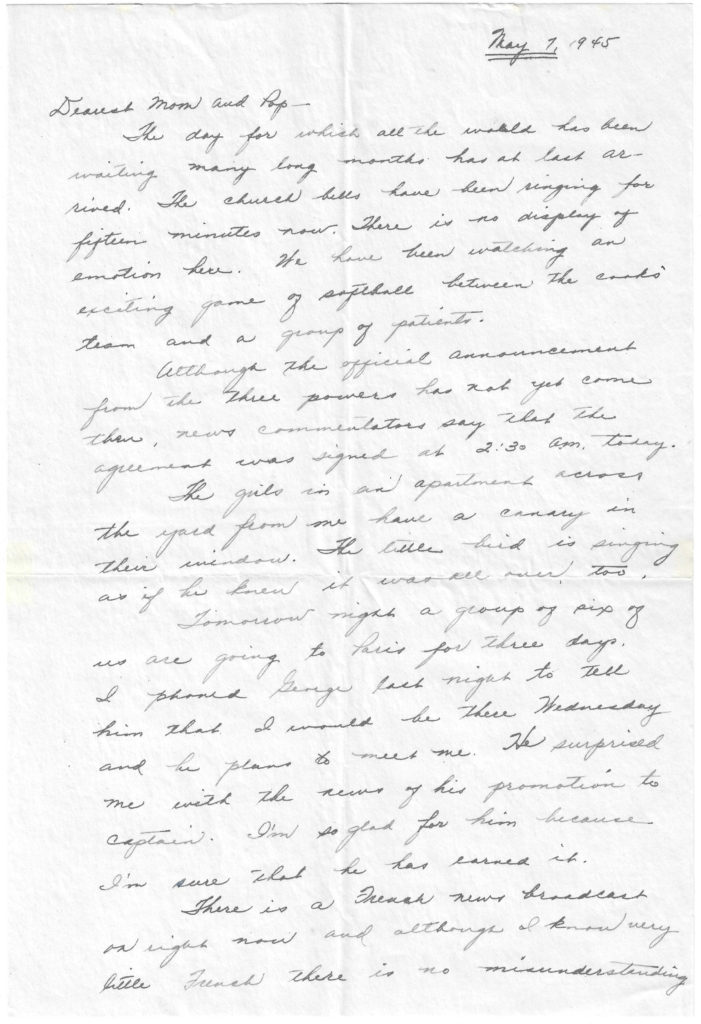 May 7, 1945
Dearest Mom and Pop—
The day for which all the world has been
waiting many long months has at last ar-
rived. The church bells have been ringing for
fifteen minutes now. There is no display of
emotion here. We have been watching an
exciting game of softball between the cooks'
team and a group of patients.
Although the official announcement
from the three powers has not yet come
thru, news commentators say that the
agreement was signed at 2:30 am. today.
The girls in an apartment across
the yard from me have a canary in
their window. The little bird is singing
as if he knew it was all over, too.
Tomorrow night a group of six of
us are going to Paris for three days.
I phoned George last night to tell
him that I would be there Wednesday
and he plans to meet me. He surprised
me with the news of his promotion to
captain. I'm so glad for him because
I'm sure that he has earned it.
There is a French news broadcast
on right now and although I know very
little French there is no misunderstanding